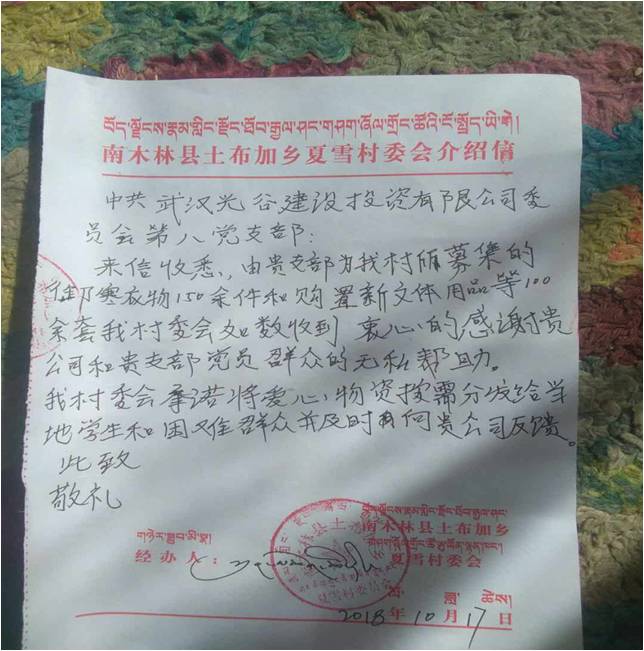 བོད་ལྗོངས་རྣམ་གླིང་རྫོང་ཐོབ་རྒྱལ་ཤང་གཤག་ཞོལ་གྲོང་ཚོའི་ངོ་སྤྲོད་ཡི་གེ།
南木林县土布加乡夏雪村委会介绍信
中共武汉光谷建设投资有限公司委
员会第八党支部:
来信收悉,由贵支部为我村所募集的
御寒衣物150余件和购置新文体用品等100
余套我村委会如数收到 衷心的感谢贵
公司和贵支部党员群众的无私帮助。
我村委会承诺将爱心物资按需分发给当
地学生和困难群众并及时向贵公司反馈。
此致
敬礼
南木林县土布加乡
经办人:
夏雪村委会
2018年10月17日
夏雪村委员会